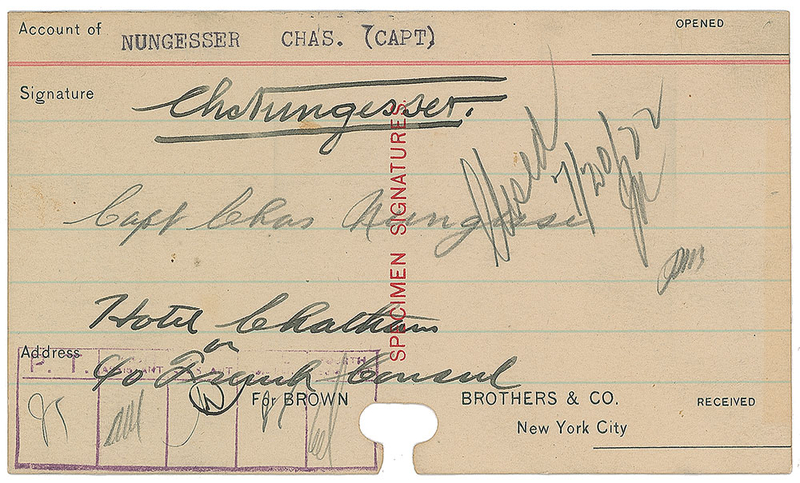 Account of NUNGESSER CHAS. (CAPT)
OPENED
Signature
Chs Nungesser.
Closed 7/20/22
Capt Chas Nungesser
SPECIMEN SIGNATURES
Hotel Chatham
or
Address
c/o French Consul
P. T.
85
For BROWN BROTHERS & CO.
RECEIVED
New York City